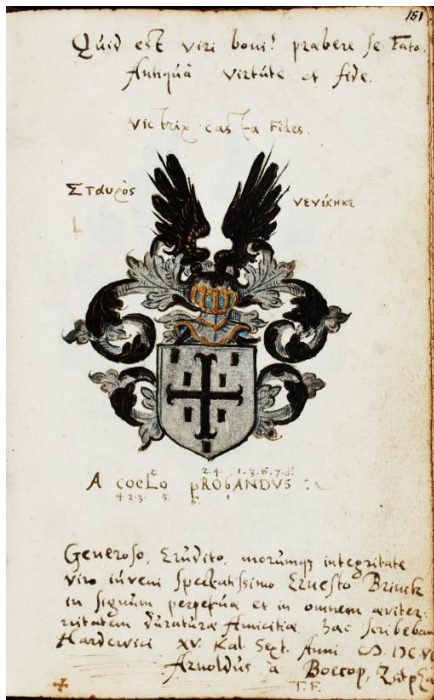 151
Quid est viri boni? præbere se Fato.
Antiquâ virtúte et fide.
Victrix casta Fides.
Σταυρὸς
νενίκηκε
A coeLo pRObANDVS
Generoso, Erúdito, morúmqz integritate
viro iúveni spectatissimo Ernesto Brinck
in signum perpetúæ et in omnem æviter-
nitatem dúratúræ Amicitiæ hæc scribebam
Hardervici XV. Kal. Sept. Anni
Arnoldús à Boecop,
T.F.